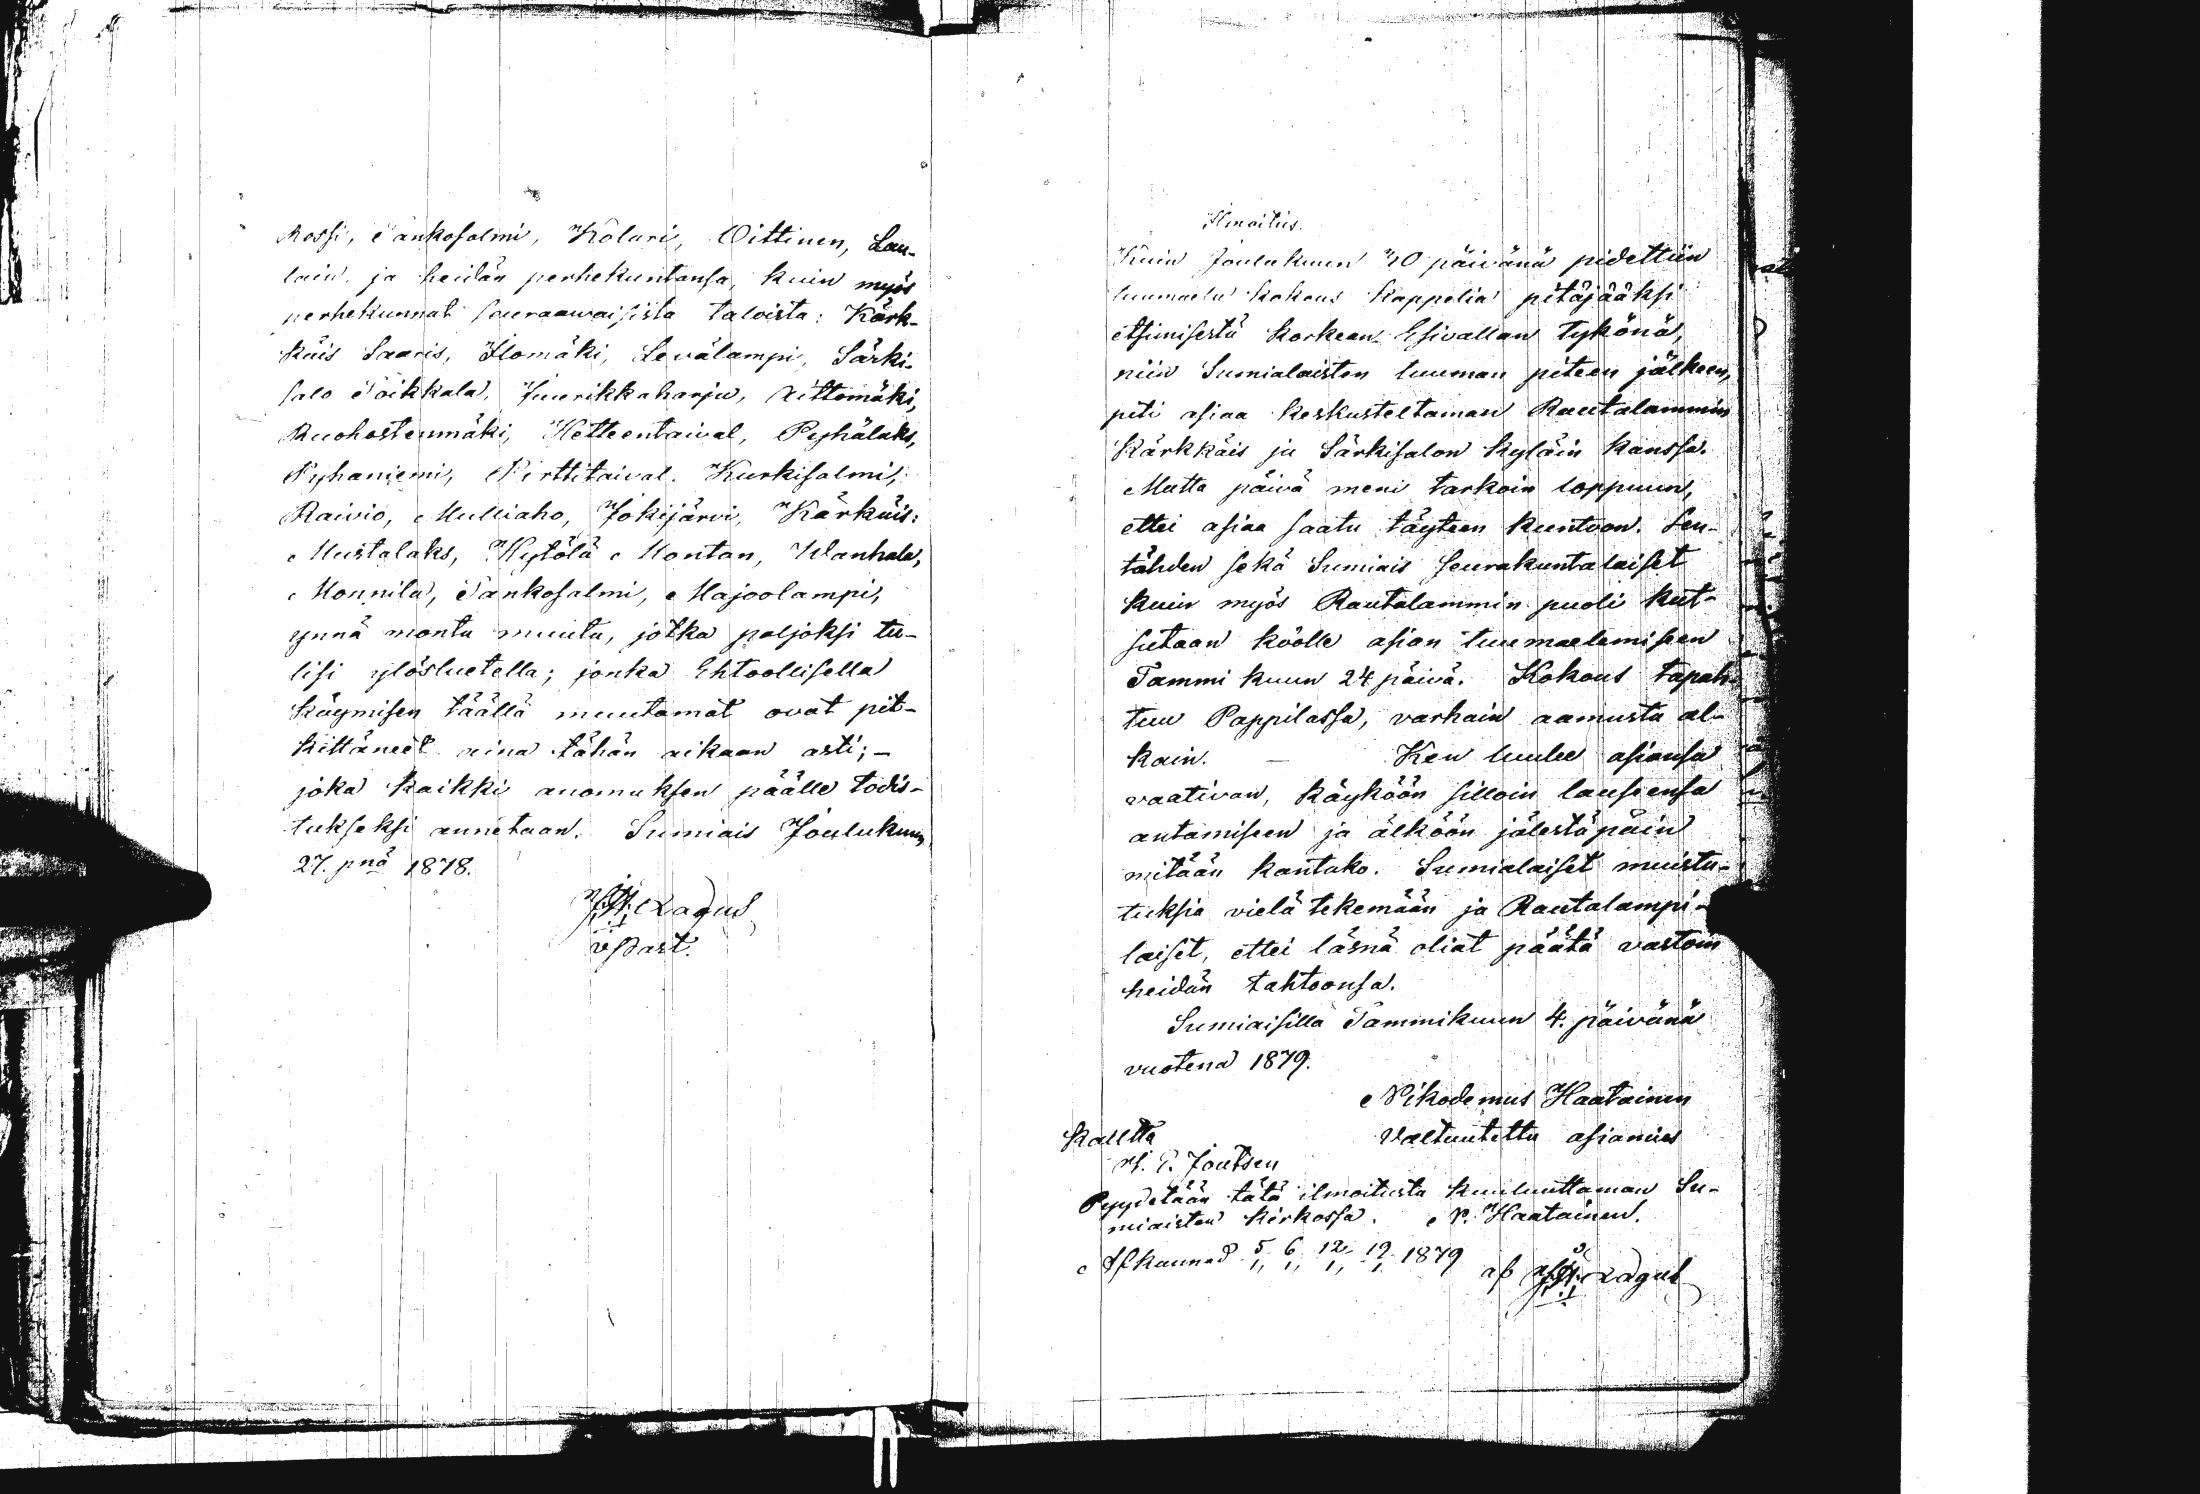 Rossi, Pankosalmi, Kolari, Wittinen, Lau-
lain, ja heidän perhekuntansa, kuin myös
perhekunnat seuraawaisista taloista: Kärk-
käis Saaris, Ilomäki, Levälampi, Särki-
salo Toikkala, Juurikkaharju, Aittomäki,
Ruohostenmäki, Hetteentaival, Pyhälaks,
Pyhaniemi, Pirttitaival, Kurkisalmi,
Raivio, Mulliaho, Jokijärvi, Kärkäis:
Mustalaks, Hytölä Montan, Wanhala,
Monnila, Pankosalmi, Majoolampi,
ynnä monta muuta, jotka paljoksi tu-
lisi ylösluetella; jonka Ehtoollisella
käymisen täällä muutamat ovat pit-
kittäneet aina tähän aikaan asti; –
joka kaikki anomuksen päälle todis-
tukseksi annetaan. Sumiais Joulukuun
27. pnä 1878.
Lagus
v Past.
Ilmoitus.
Kuin Joulukuun 30 päivänä pidettiin
tuumaelu kokous kappelia pitäjääksi
etsimisestä korkean Esivallan tykönä,
niin Sumialaisten tuuman piteen jälkeen,
piti asiaa keskusteltaman Rautalammin
Kärkkäis ja Särkisalon kyläin kanssa.
Mutta päivä meni tarkoin loppuun,
ettei asiaa saatu täyteen kuntoon. Sen-
tähden sekä Sumiais seurakuntalaiset
kuin myös Rautalammin puoli kut-
sutaan koolle asian tuumaelemiseen
Tammi kuun 24 päivä. Kokous tapah-
tuu Pappilassa, varhain aamusta al-
kain. – Ken luulee asiansa
vaativan, käyköön silloin lauseensa
antamiseen ja älköön jälestäpäin
mitään kantako. Sumialaiset muistu-
tuksia vielä tekemään ja Rautalampi-
laiset, ettei läsnä oliat päätä vastoin
heidän tahtoonsa.
Sumiaisilla Tammikuun 4. päivänä
vuotena 1879.
Nikodemus Haatainen
Valtuutettu asiamies
Kallttä
P. Joutsen
Pyydetään tätä ilmoitusta kuuluuttaman Su-
miaisten kirkossa. N. Haatainen.
Afkunnad 5, 6, 12, 19. 1879
af Lagus